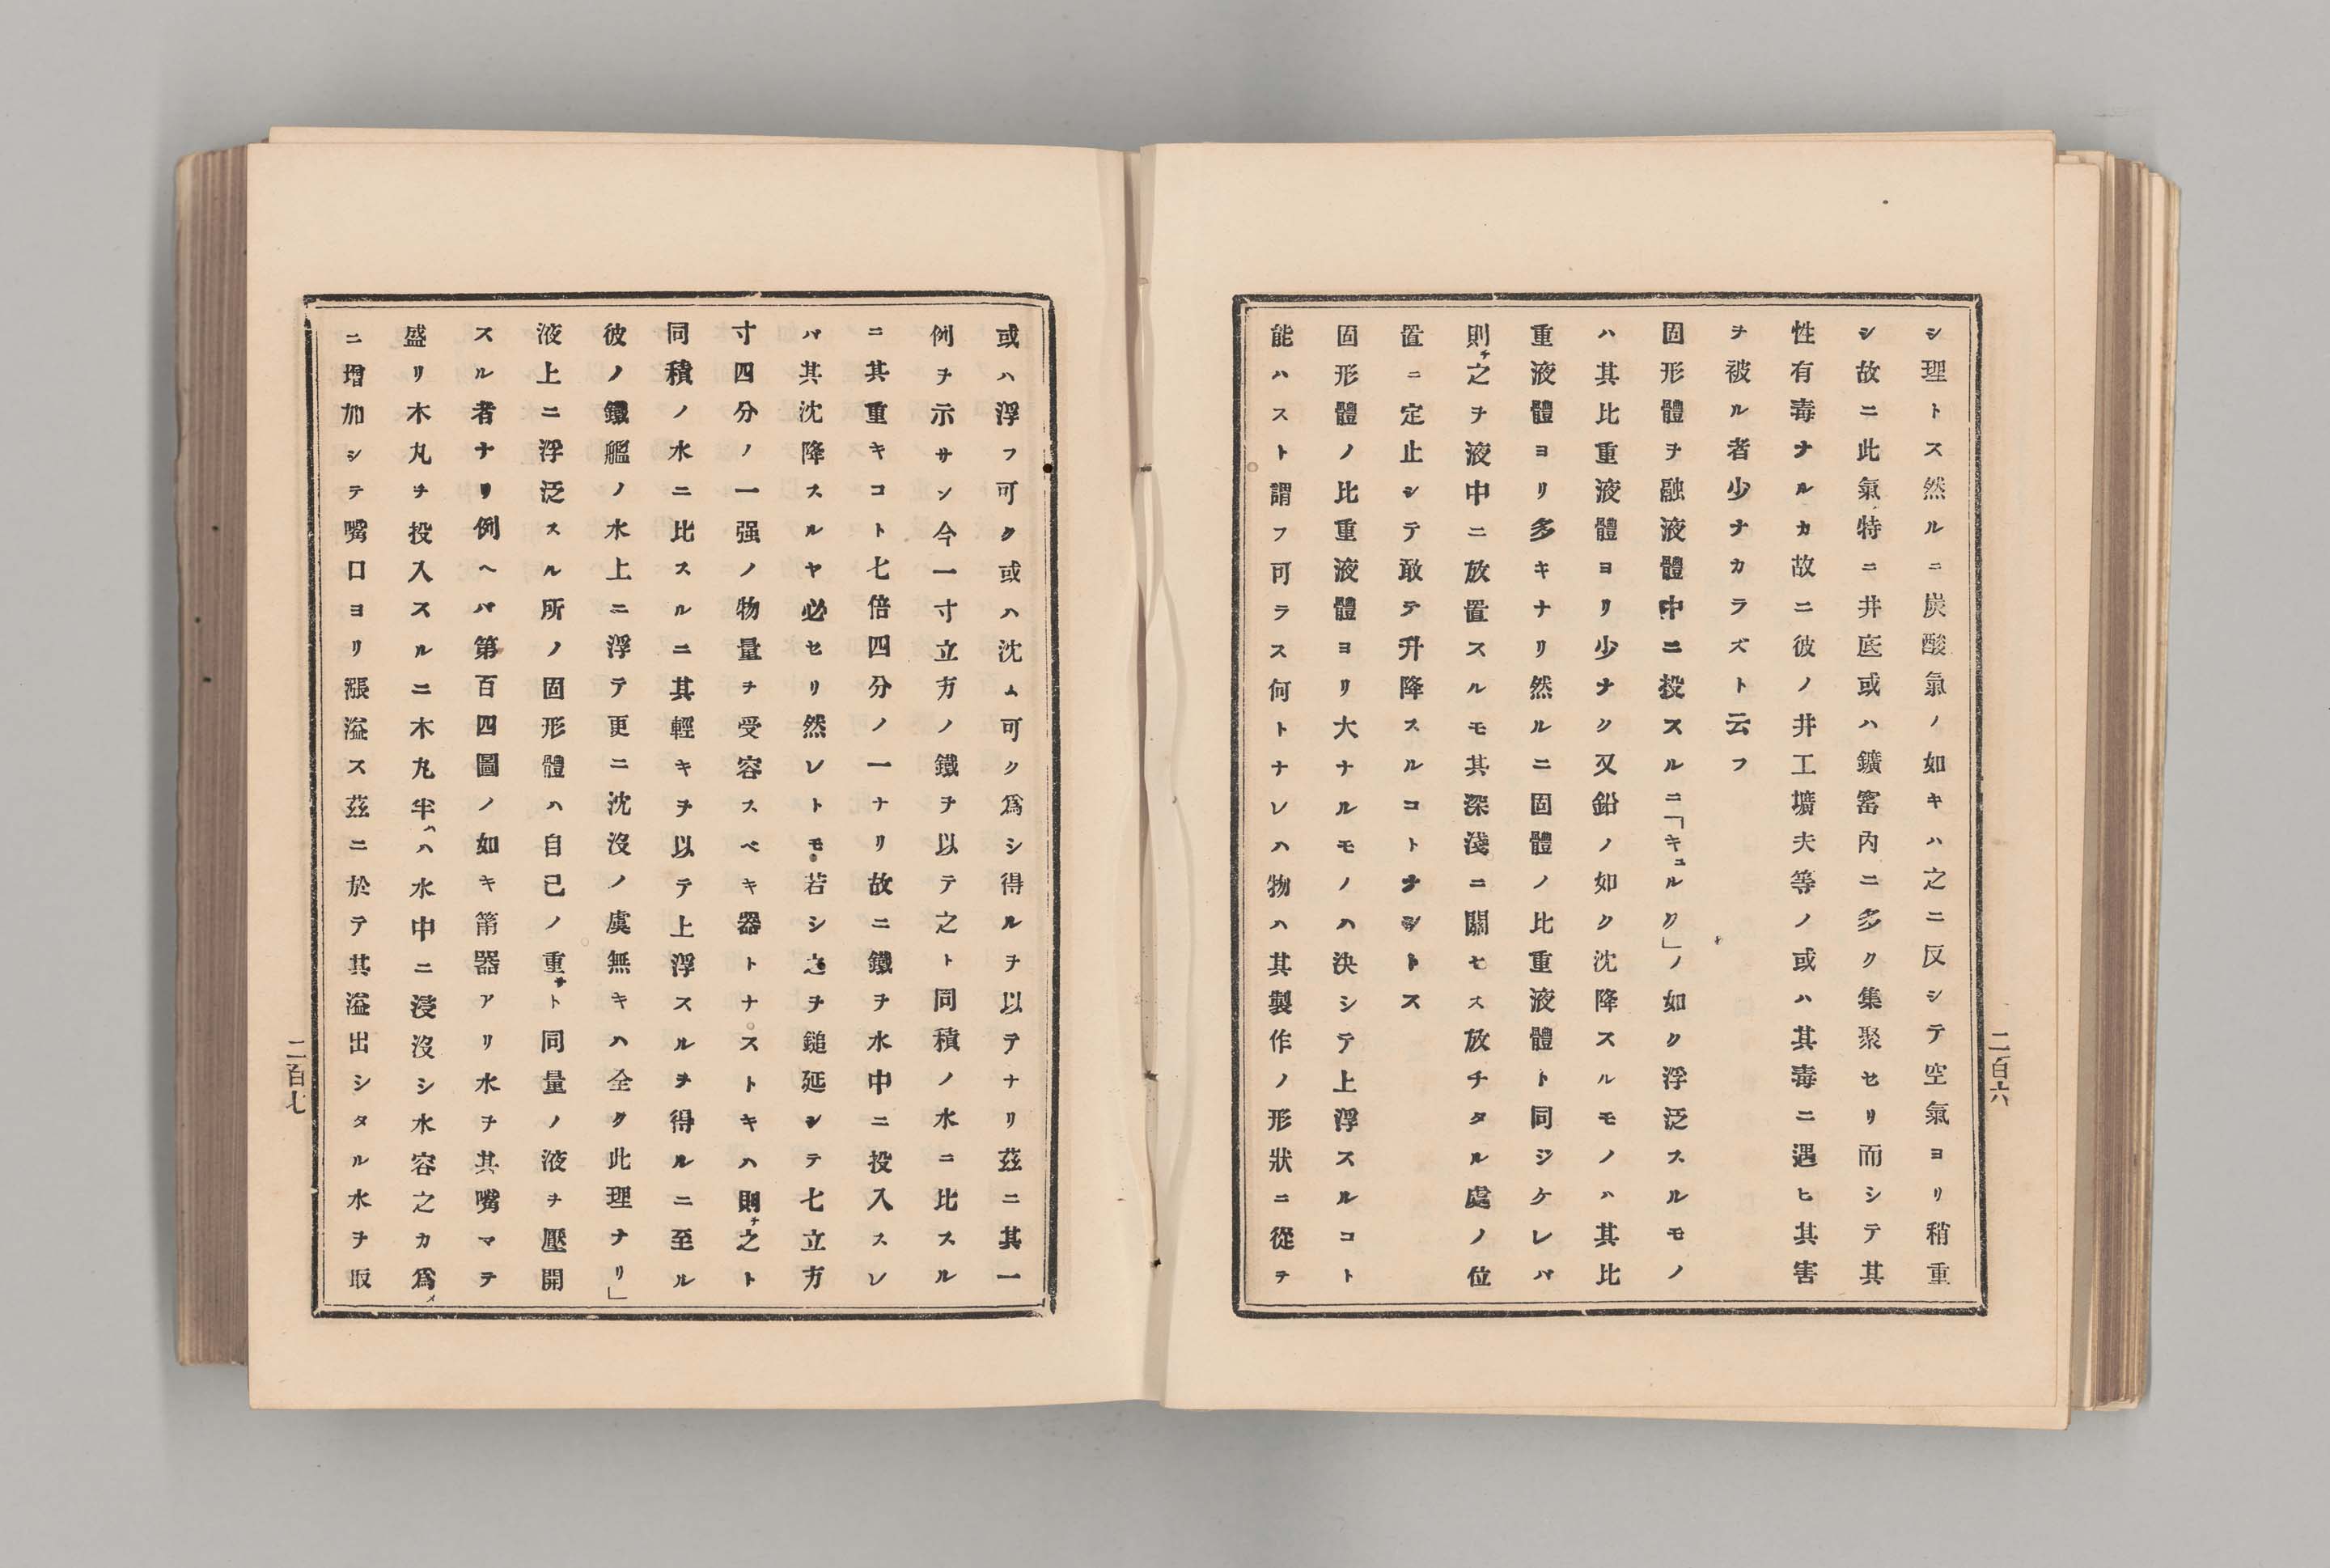 シ理トス然ルニ炭酸氣ノ如キハ之ニ反シテ空氣ヨリ稍重
シ故ニ此氣特ニ井底或ハ鑛窖內ニ多ク集聚セリ而シテ其
性有毒ナルカ故ニ彼ノ井工壙夫等ノ或ハ其毒ニ遇ヒ其害
ヲ被ル者少ナカラズト云フ
固形體ヲ融液體中ニ投スルニ「キュルク」ノ如ク浮泛スルモノ
ハ其比重液體ヨリ少ナク又鉛ノ如ク沈降スルモノハ其比
重液體ヨリ多キナリ然ルニ固體ノ比重液體ト同ジケレバ
則チ之ヲ液中ニ放置スルモ其深淺ニ關セス放チタル處ノ位
置ニ定止シテ敢テ升降スルコトナシトス
固形體ノ比重液體ヨリ大ナルモノハ決シテ上浮スルコト
能ハスト謂フ可ラス何トナレハ物ハ其製作ノ形狀ニ從テ
二百六
或ハ浮フ可ク或ハ沈ム可ク爲シ得ルヲ以テナリ茲ニ其一
例ヲ示サン今一寸立方ノ鐵ヲ以テ之ト同積ノ水ニ比スル
ニ其重キコト七倍四分ノ一ナリ故ニ鐵ヲ水中ニ投入スレ
バ其沈降スルヤ必セリ然レトモ若シ之ヲ鎚延シテ七立方
寸四分ノ一强ノ物量ヲ受容スベキ器トナストキハ則チ之ト
同積ノ水ニ比スルニ其輕キヲ以テ上浮スルヲ得ルニ至ル
彼ノ鐵艦ノ水上ニ浮テ更ニ沈沒ノ虞無キハ全ク此理ナリ」
液上ニ浮泛スル所ノ固形體ハ自己ノ重サト同量ノ液ヲ壓開
スル者ナリ例ヘバ第百四圖ノ如キ筩器アリ水ヲ其嘴マテ
盛リ木丸ヲ投入スルニ木丸半ハハ水中ニ浸沒シ水容之カ爲メ
ニ增加シテ嘴口ヨリ漲溢ス茲ニ於テ其溢出シタル水ヲ取
二百七